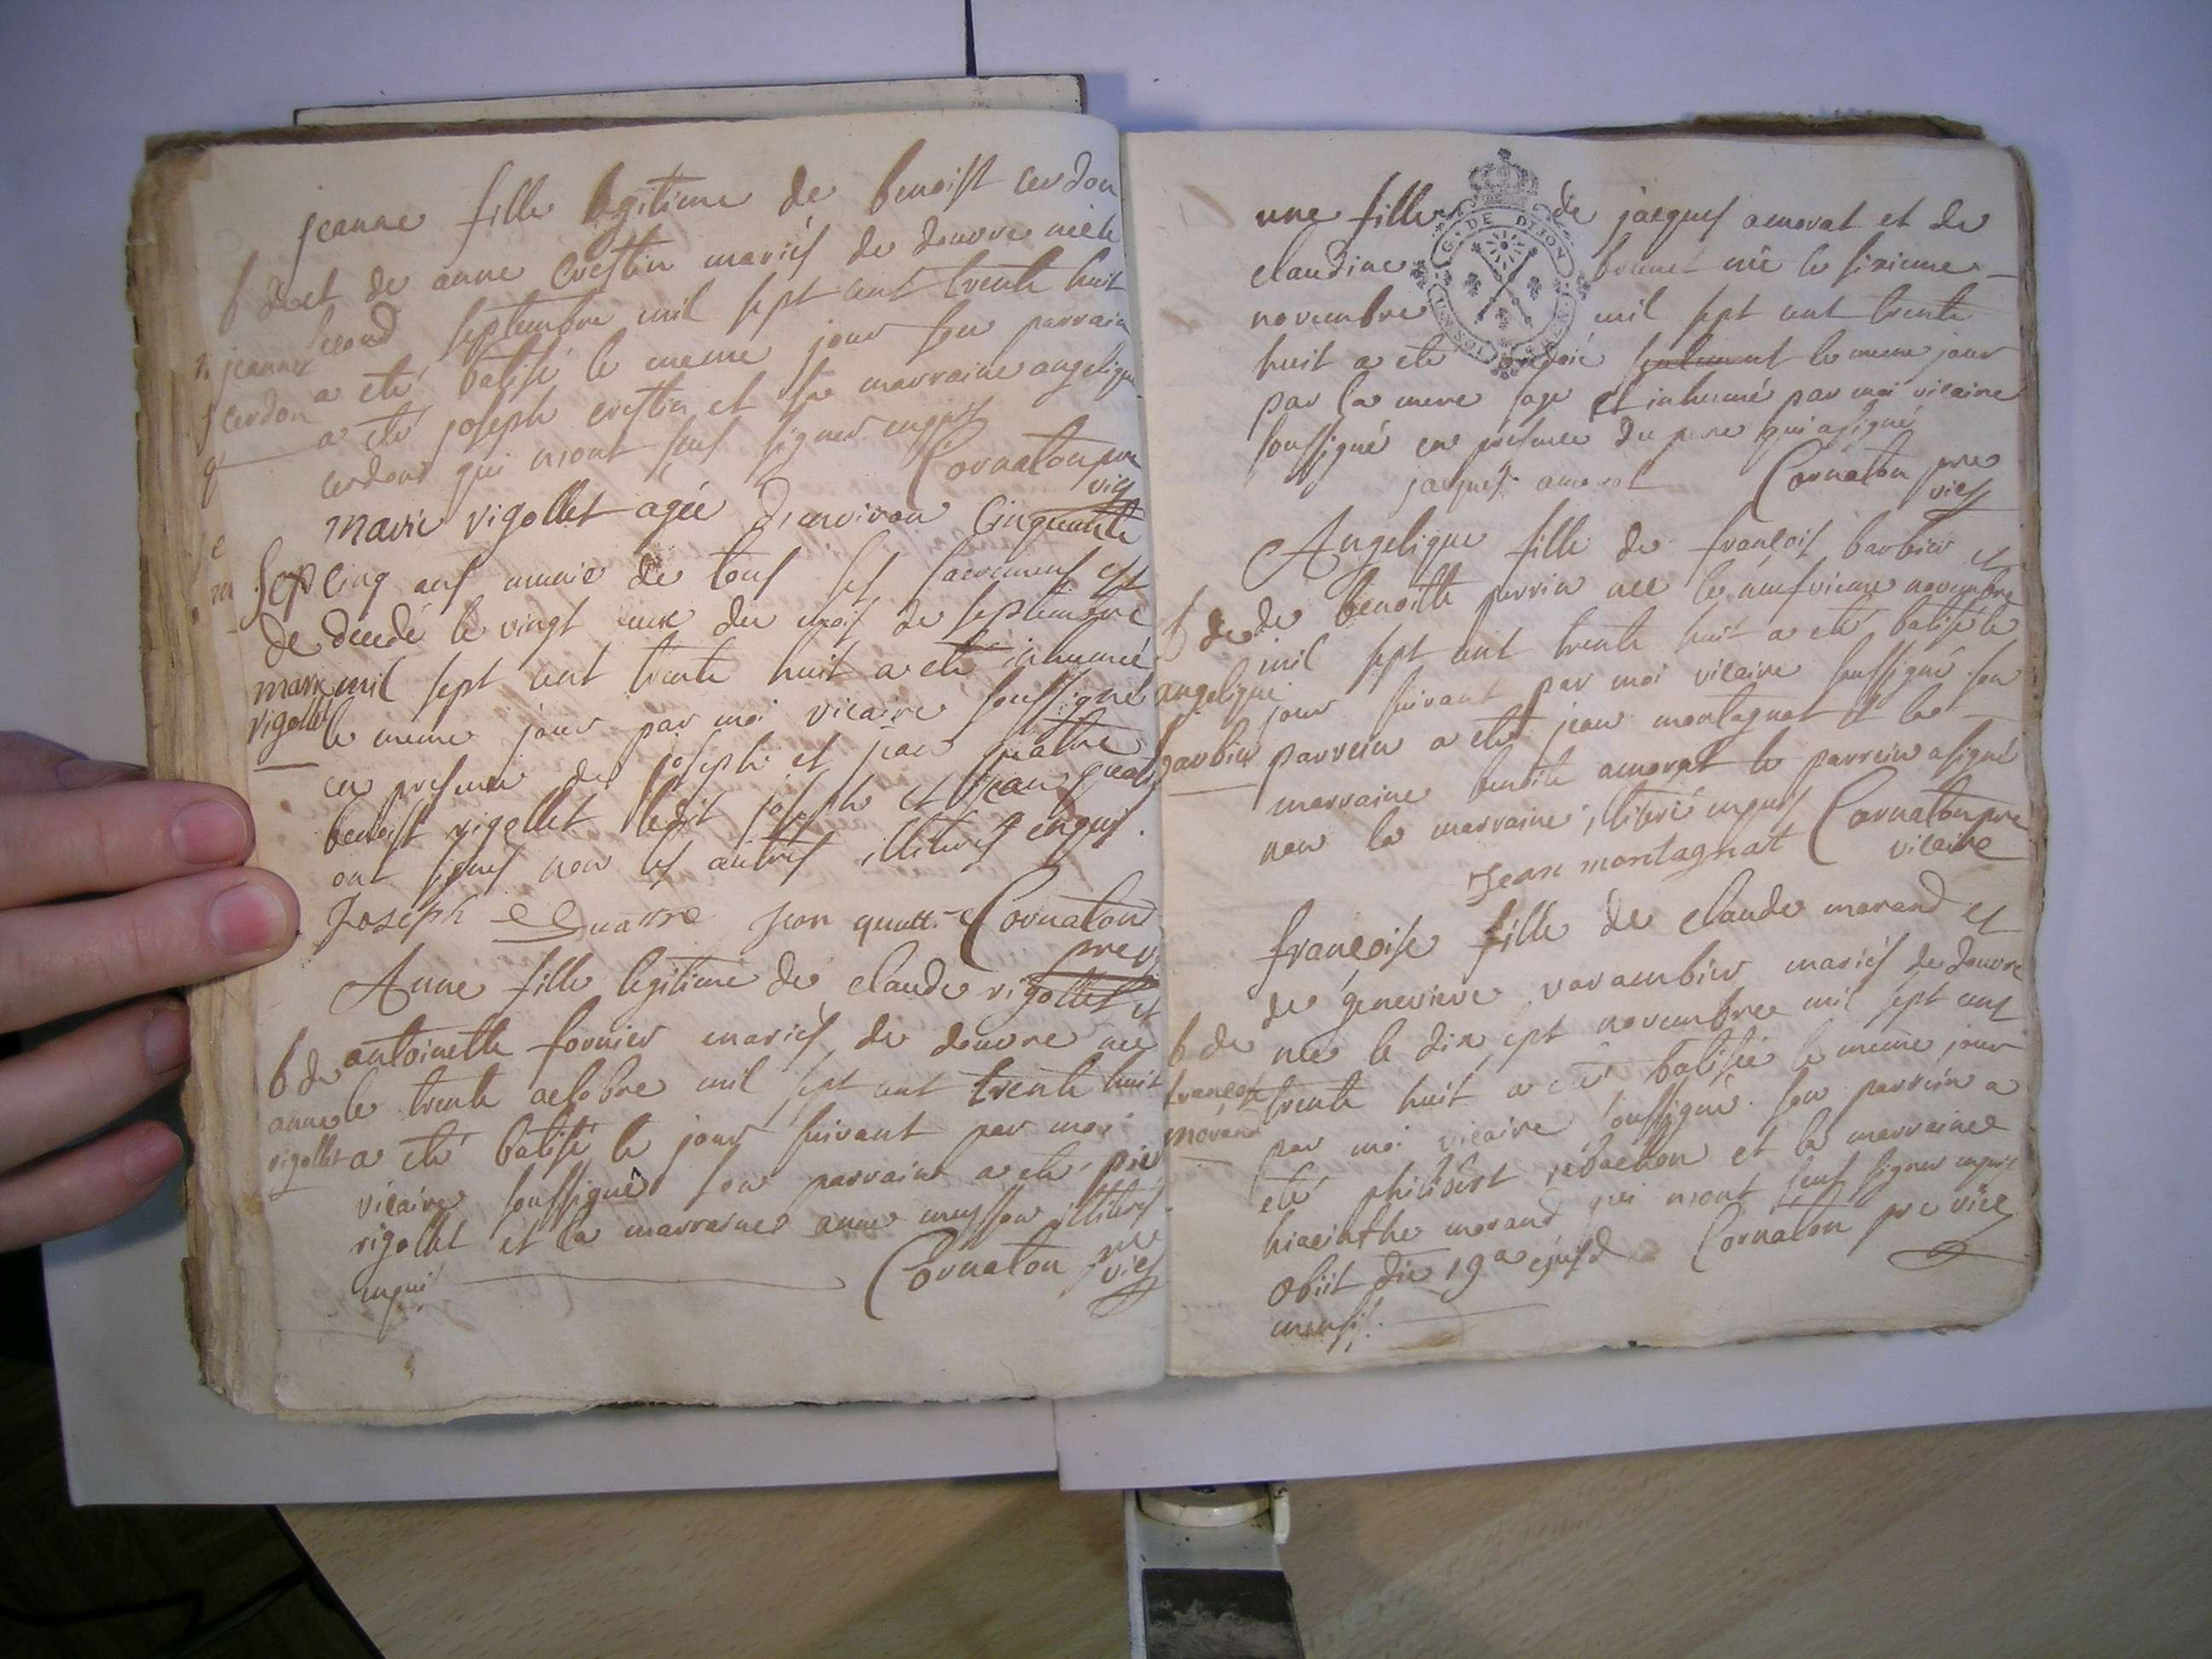 jeanne fille legitime de benoist cerdon
b de et de anne crestin mariés de douvre née le
jeanne second septembre mil sept cent trente huit
cerdon a eté batisé le meme jour son parrain
a eté joseph crestin et sa marraine angelique
cerdon qui n'ont seus signer enquis
Cornaton pre
vic
marie rigollet agée d'environ cinquante
sep cinq ans munie de tous ses sacremens est
de decedé le vingt une du mois de septembre
marie mil sept cent trente huit a eté inhumé
rigollet le meme jour par moi vicaire soussigné
en presence de joseph et jean quatre
benoist rigollet ledit joseph et jean quatre
ont signes non les autres illiterés enquis.
Joseph quatre Jean quatt Cornaton
pre v
Anne fille legitime de claude rigollet et
b de antoinette fornier mariés de douvre née
anne le trente octobre mil sept cent trente huit
rigollet a eté batisé le jour suivant par moi
vicaire soussigné son parrain a eté
rigollet et la marraine anne illiterés
enquis Cornaton pre
vic
une fille de jacques amorat et de
claudine brunet née le sixieme
novembre mil sept cent trente
huit a eté ondoié seulement le meme jour
par la mere sage et inhumé par moi vicaire
soussigné en presence du pere qui a signé
jacques amorat Cornaton pre
vic
G. DE DIJON
Angelique fille de françois barbier et
b de de benoitte perrin née le neufvieme novembre
mil sept cent trente huit a eté batisé le
angelique jour suivant par moi vicaire soussigné son
barbier parrein a eté jean montagnat et la
marraine benoite amorat le parrein a signé
non la marraine illiteré enquis Cornaton pre
Jean montagnat vicaire
françoise fille de claude morand et
de genevieve varambier mariés de douvre
b de née le dix sept novembre mil sept cent
françoise trente huit a eté batisée le meme jour
morand par moi vicaire soussigné. son parrein a
eté philibert et la marraine
hiacinthe morand qui n'ont seus signer enquis
obiit die 19a ejusd Cornaton pre vic
mensis.